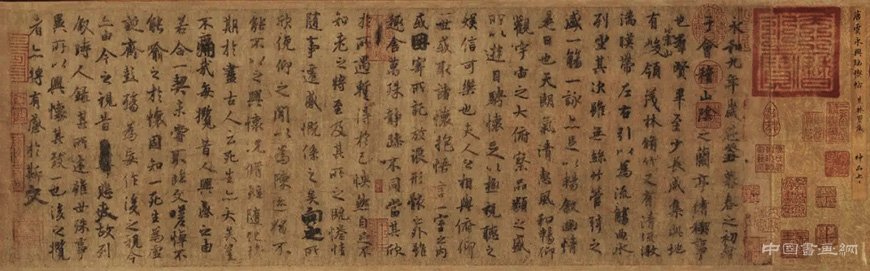 唐虞永興臨禊帖
永和九年歲在癸丑暮春之初會
于會稽山陰之蘭亭脩禊事
也羣賢畢至少長咸集此地
有崇山峻領茂林脩竹又有清流激
湍暎帶左右引以為流觴曲水
列坐其次雖無絲竹管絃之
盛一觴一詠亦足以暢敘幽情
是日也天朗氣清惠風和暢仰
觀宇宙之大俯察品類之盛
所以遊目騁懷足以極視聽之
娛信可樂也夫人之相與俯仰
一世或取諸懷抱悟言一室之內
或因寄所託放浪形骸之外雖
趣舍萬殊靜躁不同當其欣
於所遇暫得於己怏然自足不
知老之將至及其所之既惓情
隨事遷感慨係之矣向之所
欣俛仰之間以為陳迹猶不
能不以之興懷況脩短隨化終
期於盡古人云死生亦大矣豈
不痛哉每攬昔人興感之由
若合一契未嘗不臨文嗟悼不
能喻之於懷固知一死生為虛
誕齊彭殤為妄作後之視今
亦由今之視昔悲夫故列
敘時人錄其所述雖世殊事
異所以興懷其致一也後之攬
者亦將有感於斯文
中国書畫網